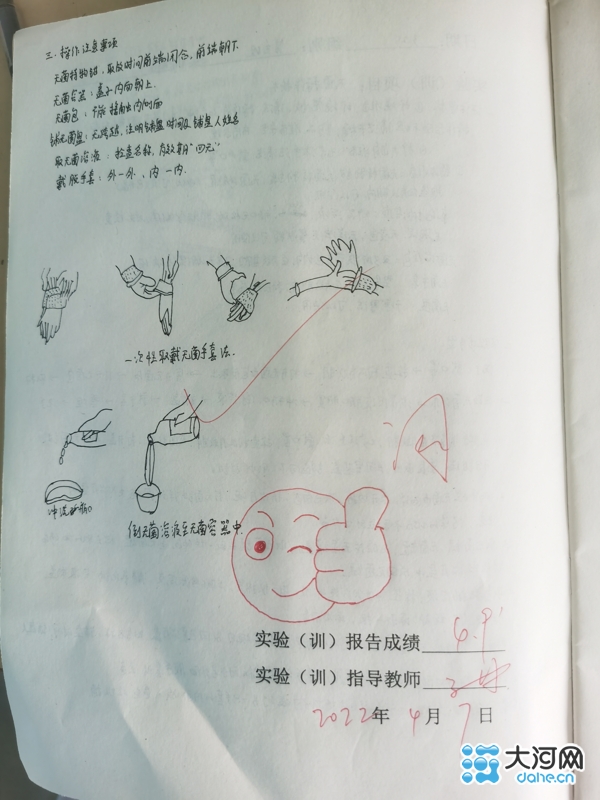 三、操作注意事项
无菌持物钳：取放时间前端闭合，前端朝下.
无菌容器：盖子内面朝上.
无菌包：
铺无菌盘：无跨越，注明铺盘时间及铺盘人姓名
取无菌溶液：检查名称，有效期"四无"
戴脱手套：外一外、内一内.
一次性取戴无菌手套法.
冲洗瓶口
倒无菌溶液至无菌容器中.
实验（训）报告成绩
实验（训）指导教师
2022年 4月 7日
大河网
dahe.cn